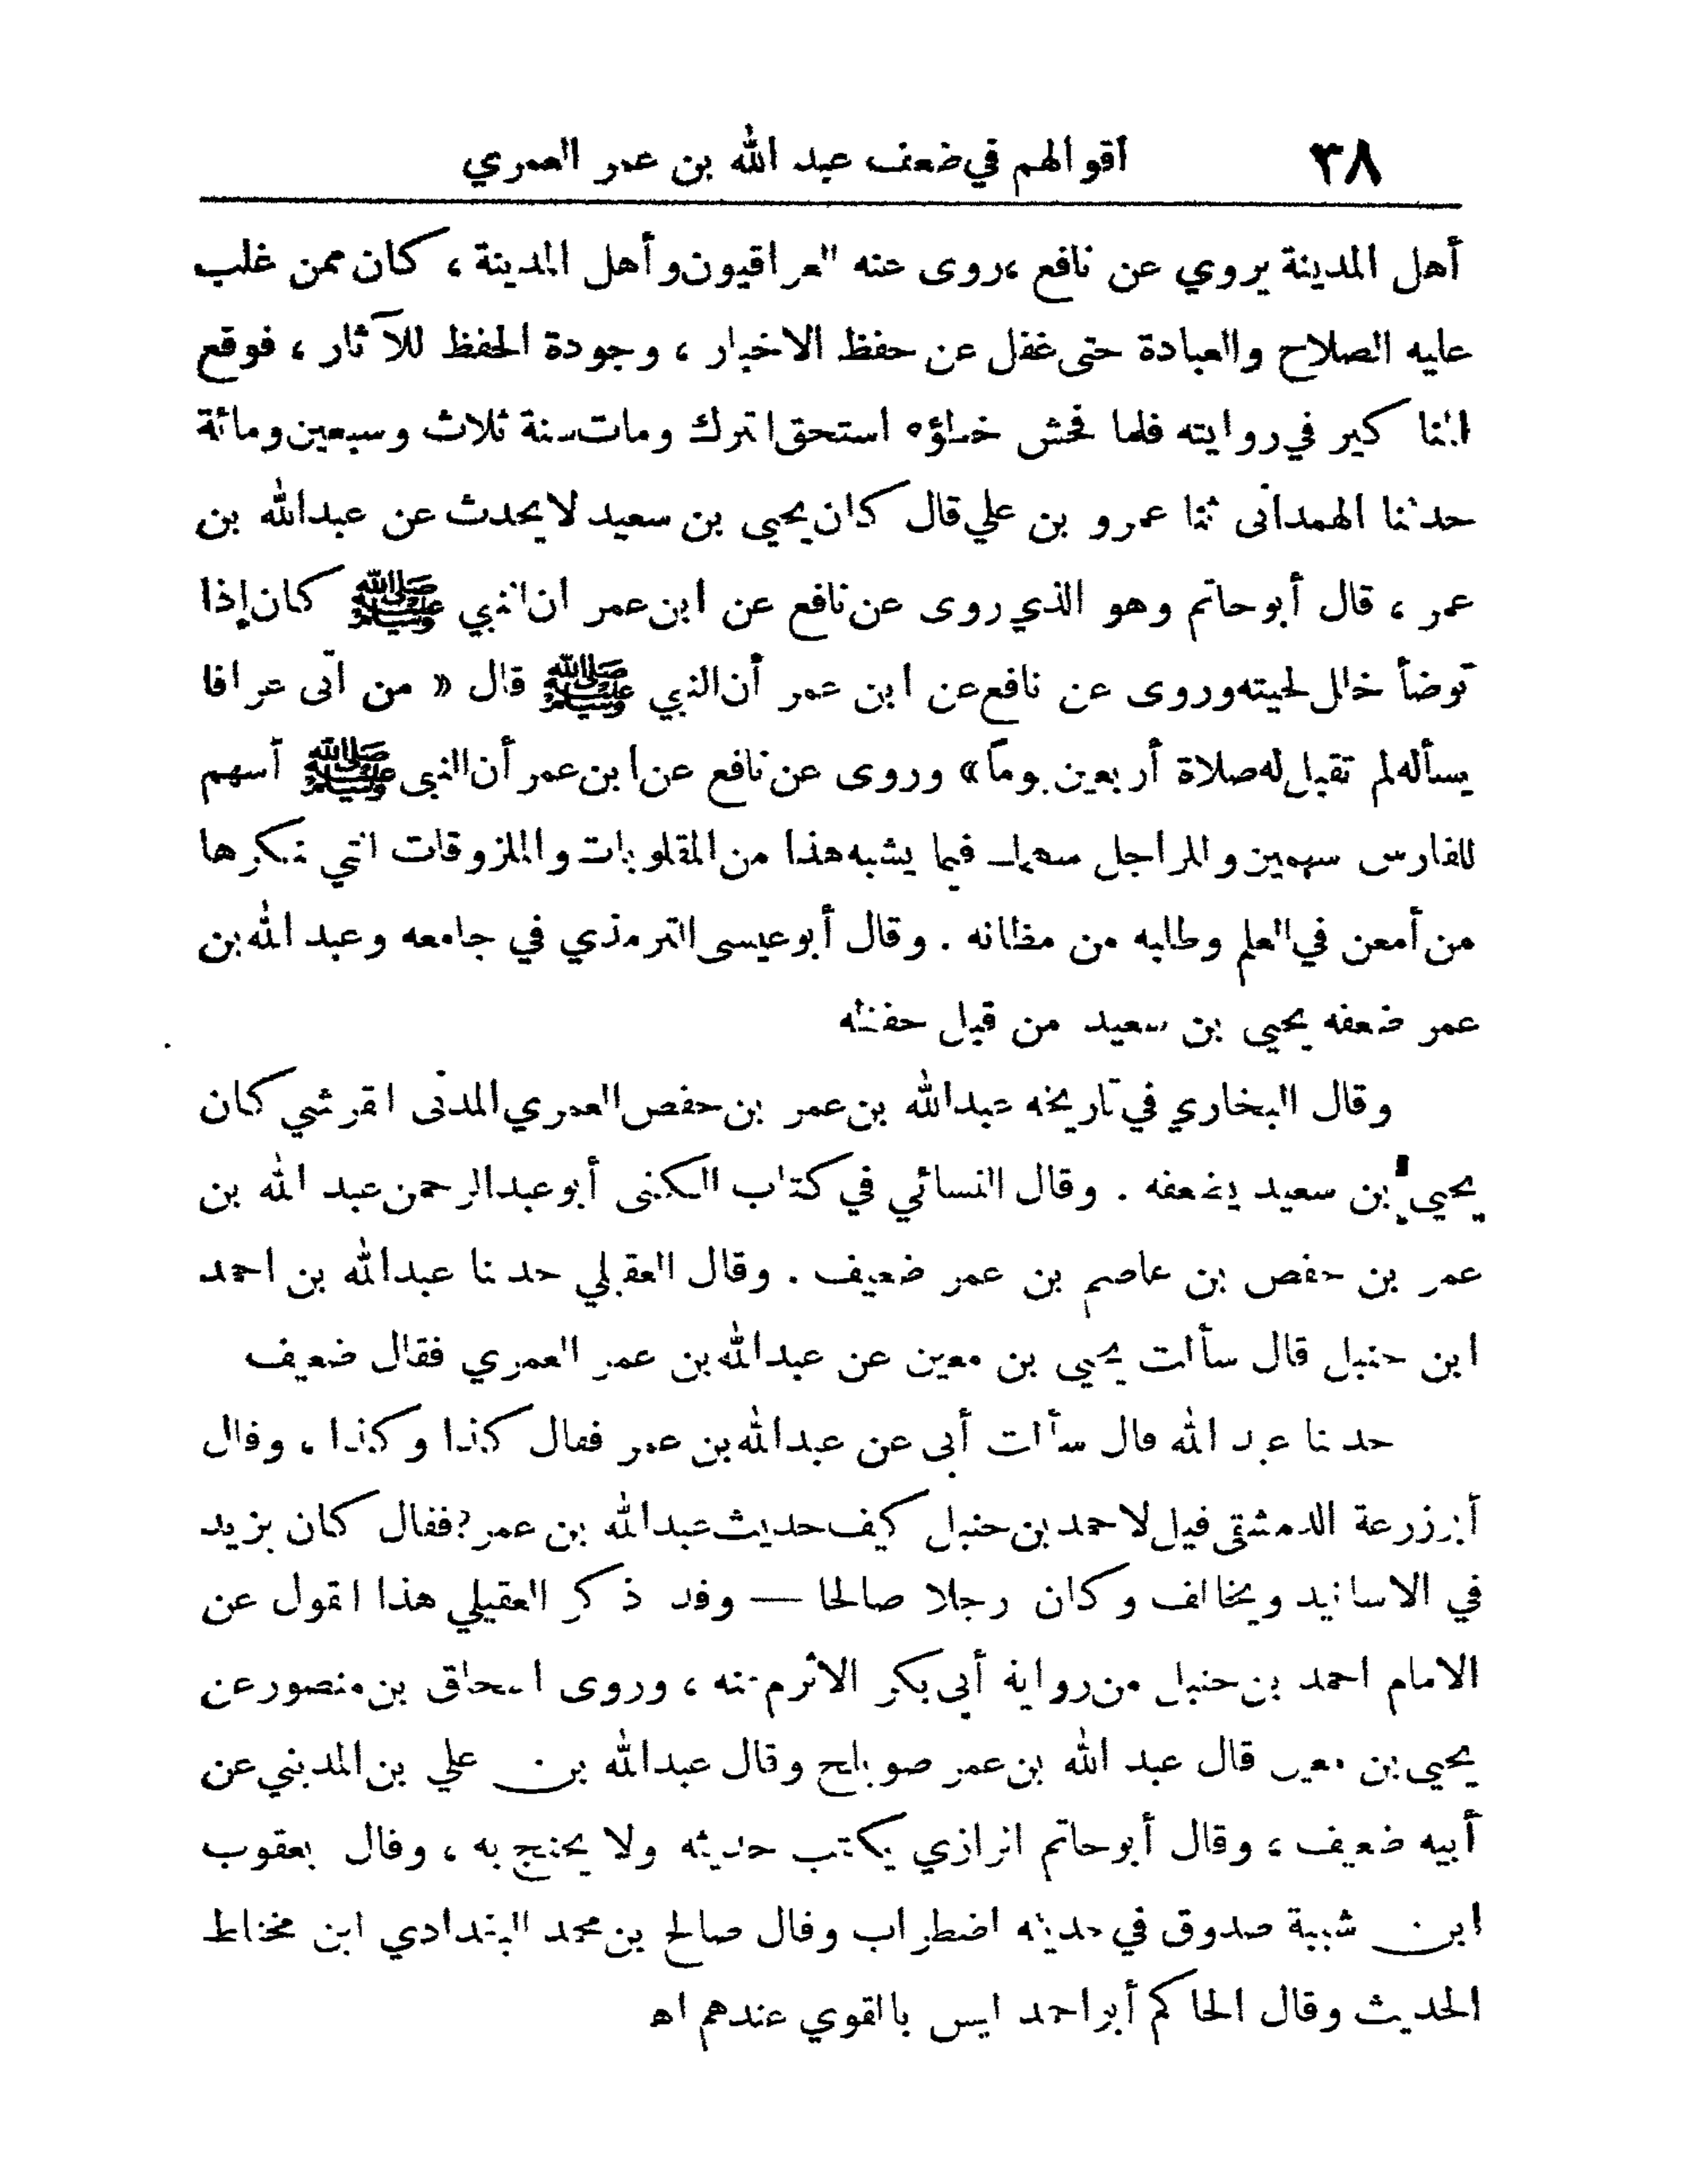 ٣٨ أقوالهم في ضعف عبد الله بن عمر العمري
أهل المدينة يروي عن نافع ، روى عنه العراقيون وأهل المدينة ، كان ممن غلب
عليه الصلاح والعبادة حتى غفل عن حفظ الاخبار ، وجودة الحفظ للآثار ، فوقع
المناكير في روايته فلما فحش خطاؤه استحق الترك ومات سنة ثلاث وسبعين ومائة
حدثنا الهمدانى ثنا عمرو بن علي قال كان يحيى بن سعيد لا يحدث عن عبد الله بن
عمر ، قال أبو حاتم وهو الذي روى عن نافع عن ابن عمر ان النبي ﷺ كان إذا
توضأ خلل لحيته وروى عن نافع عن ابن عمر أن النبي ﷺ قال « من أتى عرافا
يسأله لم تقبل له صلاة أربعين يوماً » وروى عن نافع عن ابن عمر أن النبى ﷺ أسهم
للفارس سهمين وللراجل سهما فيما يشبه هذا من المقلوبات والملزوقات التي ينكرها
من أمعن في العلم وطلبه من مظانه . وقال أبو عيسى الترمذي في جامعه وعبد الله بن
عمر ضعفه يحيى بن سعيد من قبل حفظه
وقال البخاري في تاريخه عبد الله بن عمر بن حفص العمري المدنى القرشي كان
يحيى بن سعيد يضعفه . وقال النسائي في كتاب الكنى أبو عبد الرحمن عبد الله بن
عمر بن حفص بن عاصم بن عمر ضعيف . وقال العقيلي حدثنا عبد الله بن احمد
ابن حنبل قال سألت يحيى بن معين عن عبد الله بن عمر العمري فقال ضعيف
حدثنا عبد الله قال سألت أبى عن عبد الله بن عمر فقال كذا وكذا ، وقال
أبو زرعة الدمشقى قيل لاحمد بن حنبل كيف حديث عبد الله بن عمر ? فقال كان يزيد
في الاسانيد ويخالف وكان رجلا صالحا — وقد ذكر العقيلي هذا القول عن
الامام احمد بن حنبل من رواية أبى بكر الاثرم عنه ، وروى اسحاق بن منصور عن
يحيى بن معين قال عبد الله بن عمر صويلح وقال عبد الله بن علي بن المديني عن
أبيه ضعيف ، وقال أبو حاتم الرازي يكتب حديثه ولا يحتج به ، وقال يعقوب
ابن شيبة صدوق في حديثه اضطراب وقال صالح بن محمد البغدادي لين مختلط
الحديث وقال الحاكم أبو احمد ليس بالقوي عندهم اه